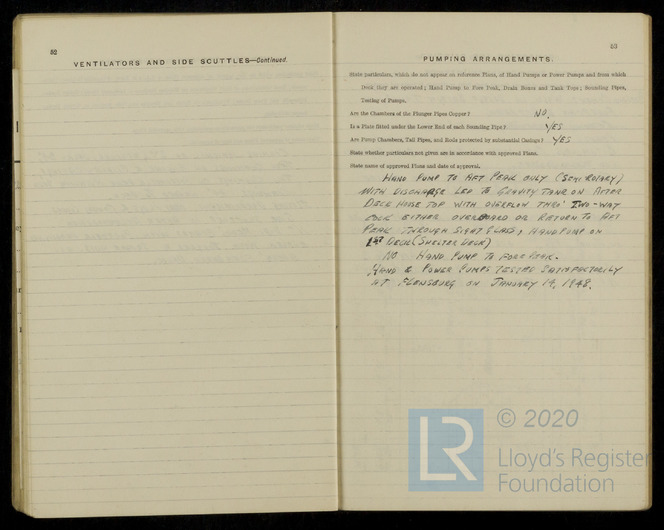 52
VENTILATORS AND SIDE SCUTTLES—Continued.
53
PUMPING ARRANGEMENTS.
State particulars, which do not appear on reference Plans, of Hand Pumps or Power Pumps and from which
Deck they are operated; Hand Pump to Fore Peak, Drain Boxes and Tank Tops; Sounding Pipes,
Testing of Pumps.
Are the Chambers of the Plunger Pipes Copper? NO.
Is a Plate fitted under the Lower End of each Sounding Pipe? YES
Are Pump Chambers, Tail Pipes, and Rods protected by substantial Casings? YES
State whether particulars not given are in accordance with approved Plans.
State name of approved Plans and date of approval.
HAND PUMP TO AFT PEAK ONLY (SEMI ROTARY)
WITH DISCHARGE LED TO GRAVITY TANK ON AFTER
DECK HOUSE TOP WITH OVERFLOW THRO' TWO-WAY
COCK EITHER OVERBOARD OR RETURN TO AFT
PEAK THROUGH SIGHT GLASS, HAND PUMP ON
1ST DECK (SHELTER DECK)
NO HAND PUMP TO FORE PEAK.
HAND & POWER PUMPS TESTED SATISFACTORILY
AT FLENSBURG ON JANUARY 14, 1948.
LR © 2020
Lloyd's Register
Foundation